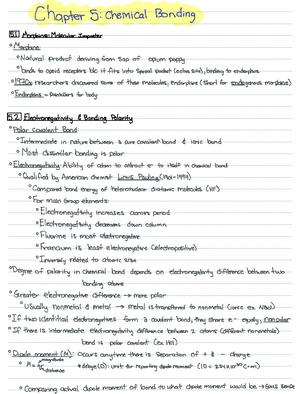 Chapter 5: Chemical Bonding
5.1 Morphine: Molecular Imposter
° Morphine
° Natural product deriving from sap of opium poppy
° binds to opioid receptors b/c it fits into special pocket (active site), binding to endorphins
° 1970s researchers discovered some of these molecules, Endorphins (short for endogenous morphine)
° Endorphins = Painkillers for body
5.2 Electronegativity & Bonding Polarity
° Polar Covalent Bond:
° Intermediate in nature between a pure covalent bond & ionic bond
° Most dissimilar bonding is polar
° Electronegativity: Ability of atom to attract e⁻ to itself in chemical bond
° Qualified by American chemist Linus Pauling (1901-1994)
° Compared bond energy of heteronuclear diatomic molecules (HF)
° For main Group elements:
° Electronegativity increases across period
° Electronegativity decreases down column
° Fluorine is most electronegative
° Francium is least electronegative (electropositive)
° Inversely related to atomic size
° Degree of polarity in chemical bond depends on electronegativity difference between two
bonding atoms
° Greater electronegative difference → more polar
° Usually nonmetal & metal → metal is transferred to nonmetal (ionic ex. NaCl)
° If two identitical electronegatives form a covalent bond, they share e⁻ equally, nonpolar
° If there is intermediate electronegativity difference between 2 atoms (different nonmetals)
bond is polar covalent (ex. HCl)
° Dipole moment (μ): Occurs anytime there is separation of + & - charge
magnitude
° μ = qr
distance
° Comparing actual dipole moment of bond to what dipole moment would be →